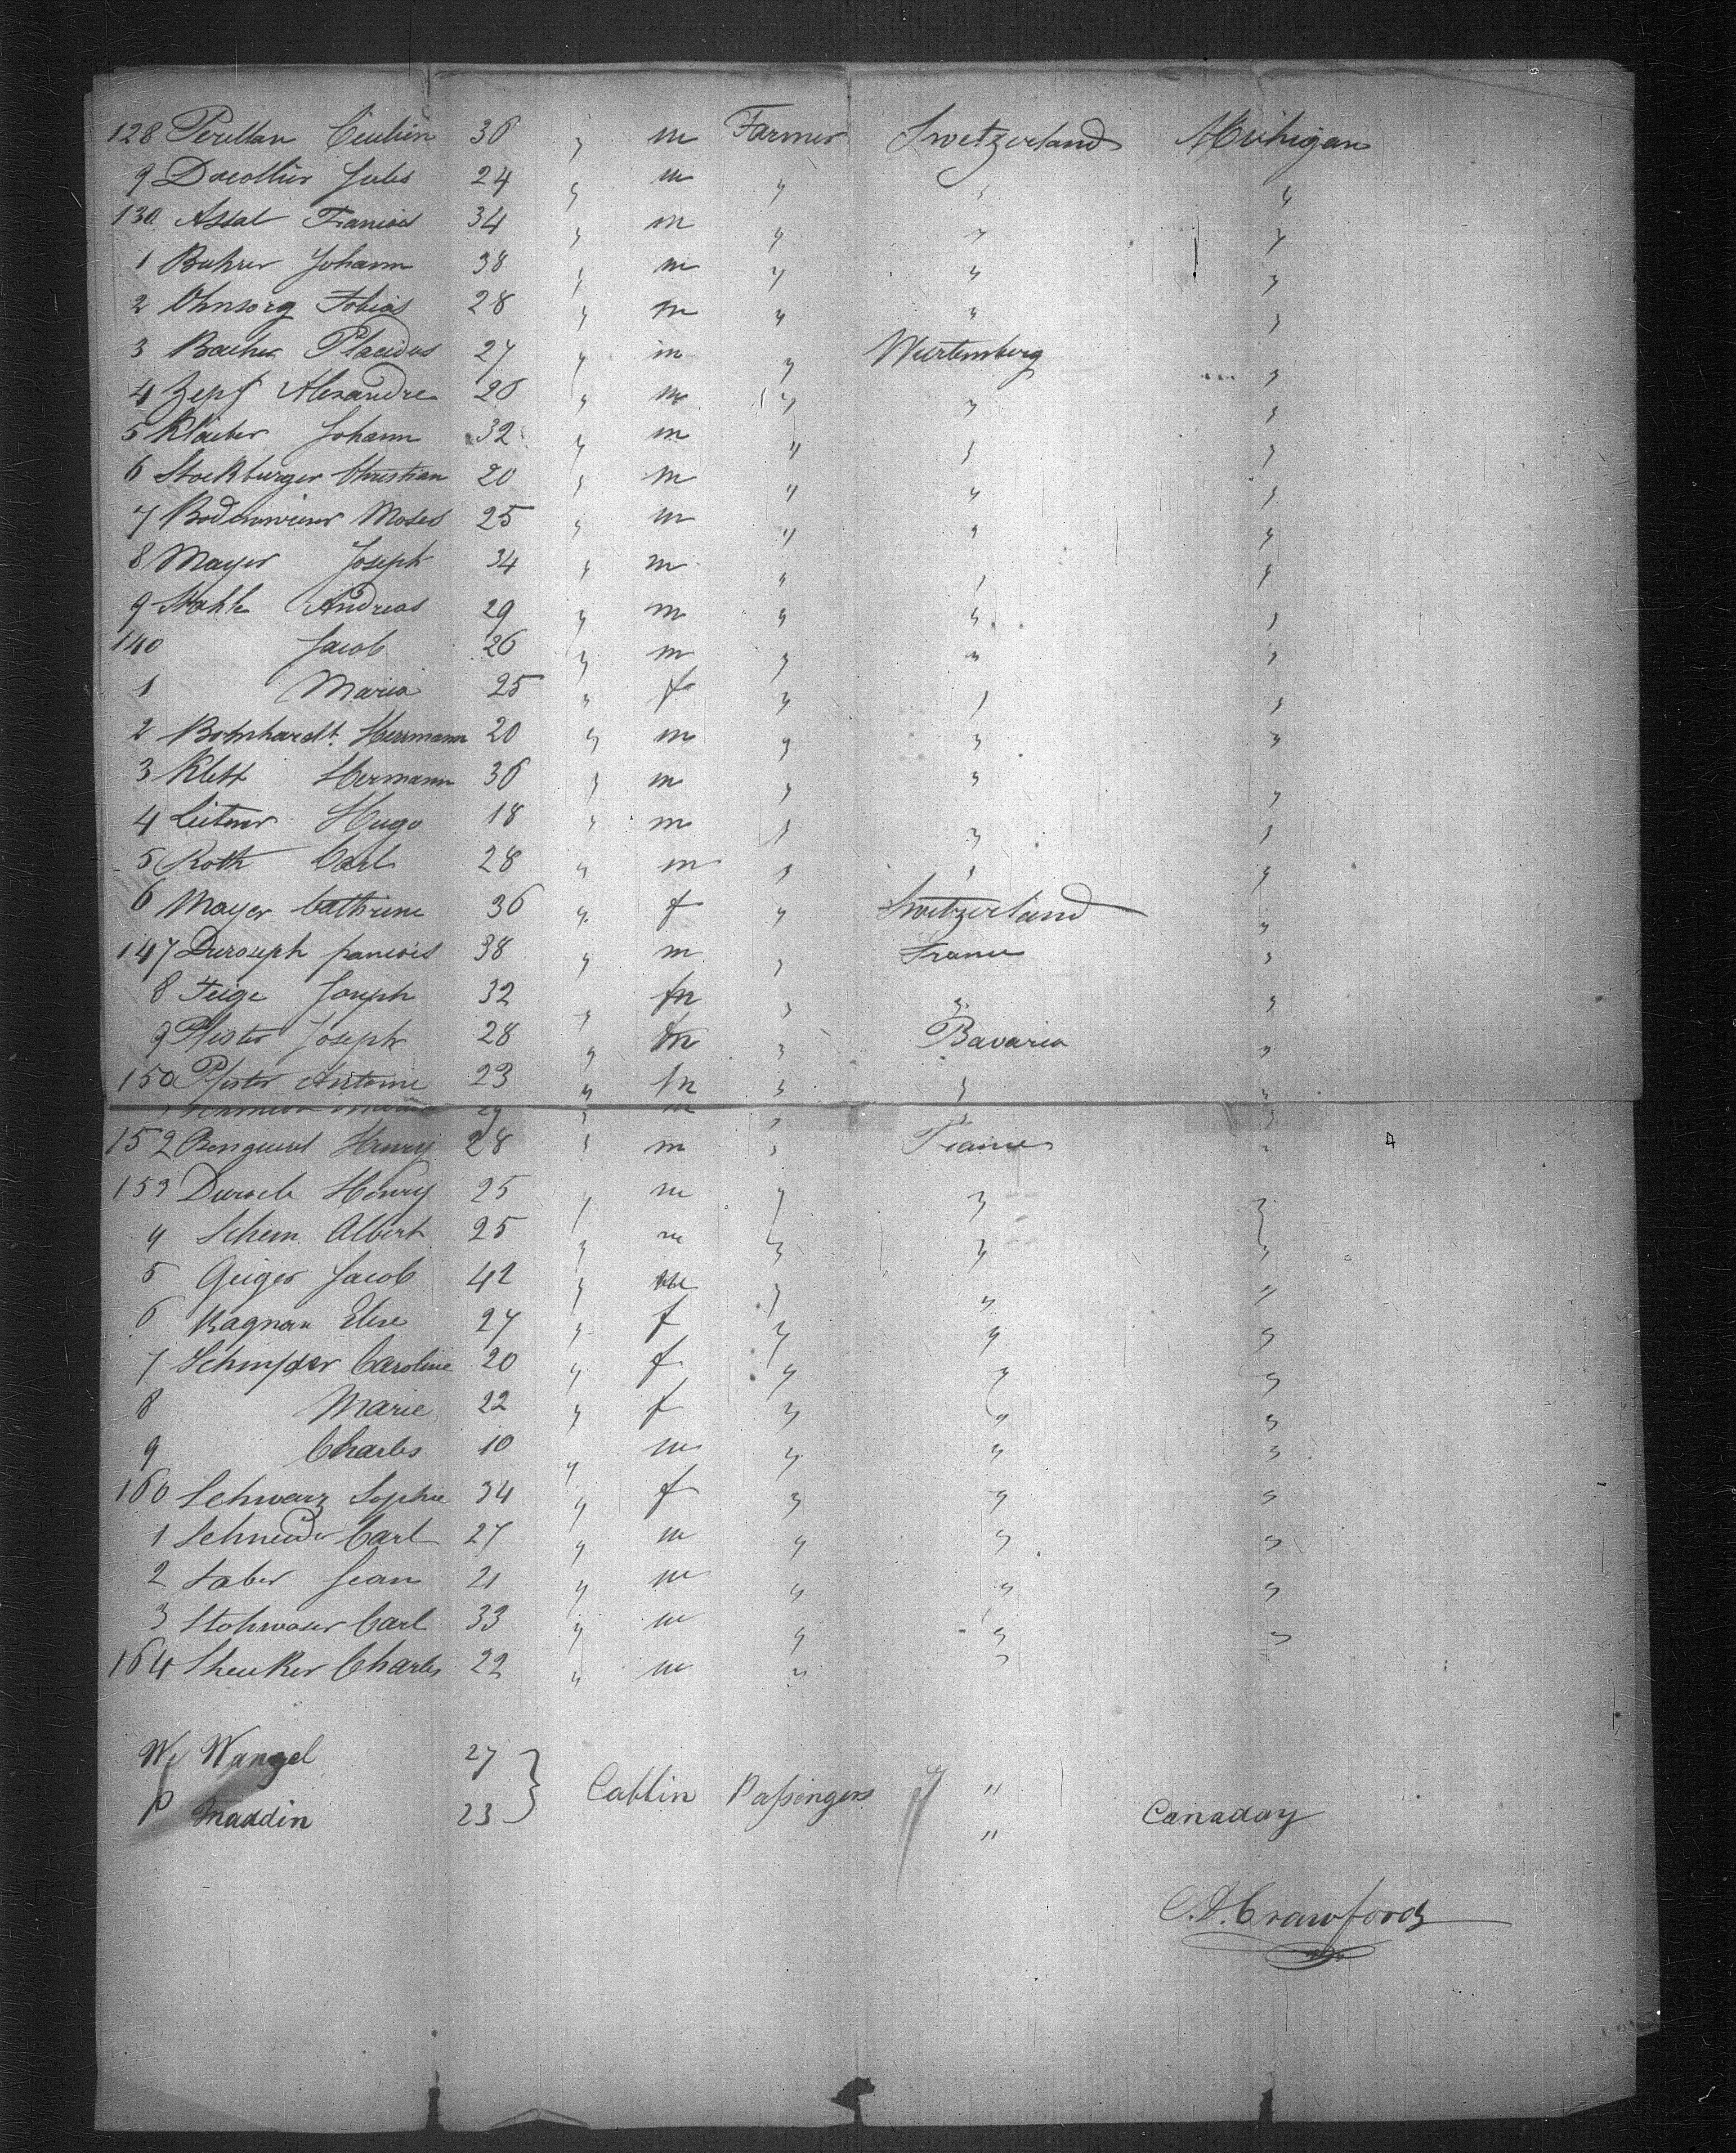 128 Perillan 36 " m Farmer Switzerland Michigan
9 Dacollier Jules 24 " m " " "
130 Assal Francois 34 " m " " "
1 Buhrer Johann 38 " m " " "
2 Ohnsorg Tobias 28 " m " " "
3 Bacher Placidus 27 " m " Wurtemberg "
4 Zepf Alexandre 26 " m " " "
5 Klaiber Johann 32 " m " " "
6 Stockburger Christian 20 " m " " "
7 Bodenwieser Moses 25 " m " " "
8 Mayer Joseph 34 " m " " "
9 Stahle Andreas 29 " m " " "
140 Jacob 26 " m " " "
1 Maria 25 " f " " "
2 Bornhardt Herrmann 20 " m " " "
3 Klett Hermann 36 " m " " "
4 Leitner Hugo 18 " m " " "
5 Roth Carl 28 " m " " "
6 Mayer Cathrine 36 " f " Switzerland "
147 Duroseph francois 38 " m " France "
8 Feige Joseph 32 " m " " "
9 Pfister Joseph 28 " m " Bavaria "
150 Pfister Antoine 23 " m " " "
29 " m " " "
152 Henry 28 " m " France "
153 Henry 25 " m " " "
4 Schem Albert 25 " m " " "
5 Geiger Jacob 42 " m " " "
6 Ragnan Elise 27 " f " " "
7 Schnyder Caroline 20 " f " " "
8 Marie 22 " f " " "
9 Charles 10 " m " " "
160 Schwarz Sophie 34 " f " " "
1 Schneider Carl 27 " m " " "
2 Saber Jean 21 " m " " "
3 Stohwaser Carl 33 " m " " "
164 Sheuker Charles 22 " m " "
W. Wangel 27 } Cabbin Passengers "
P Maddin 23 " Canaday
C. A. Crawford